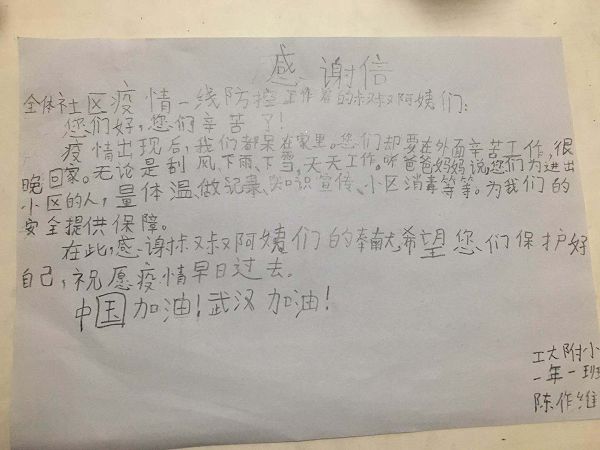 感谢信
全体社区疫情一线防控工作者的叔叔阿姨们：
您们好，您们辛苦了！
疫情出现后，我们都呆在家里。您们却要在外面辛苦工作，很
晚回家。无论是刮风、下雨、下雪，天天工作。听爸爸妈妈说，您们为进出
小区的人，量体温、做记录、知识宣传、小区消毒等等。为我们的
安全提供保障。
在此，感谢叔叔阿姨们的奉献，希望您们保护好
自己，祝愿疫情早日过去。
中国加油！武汉加油！
工大附小
一年一班
陈作维